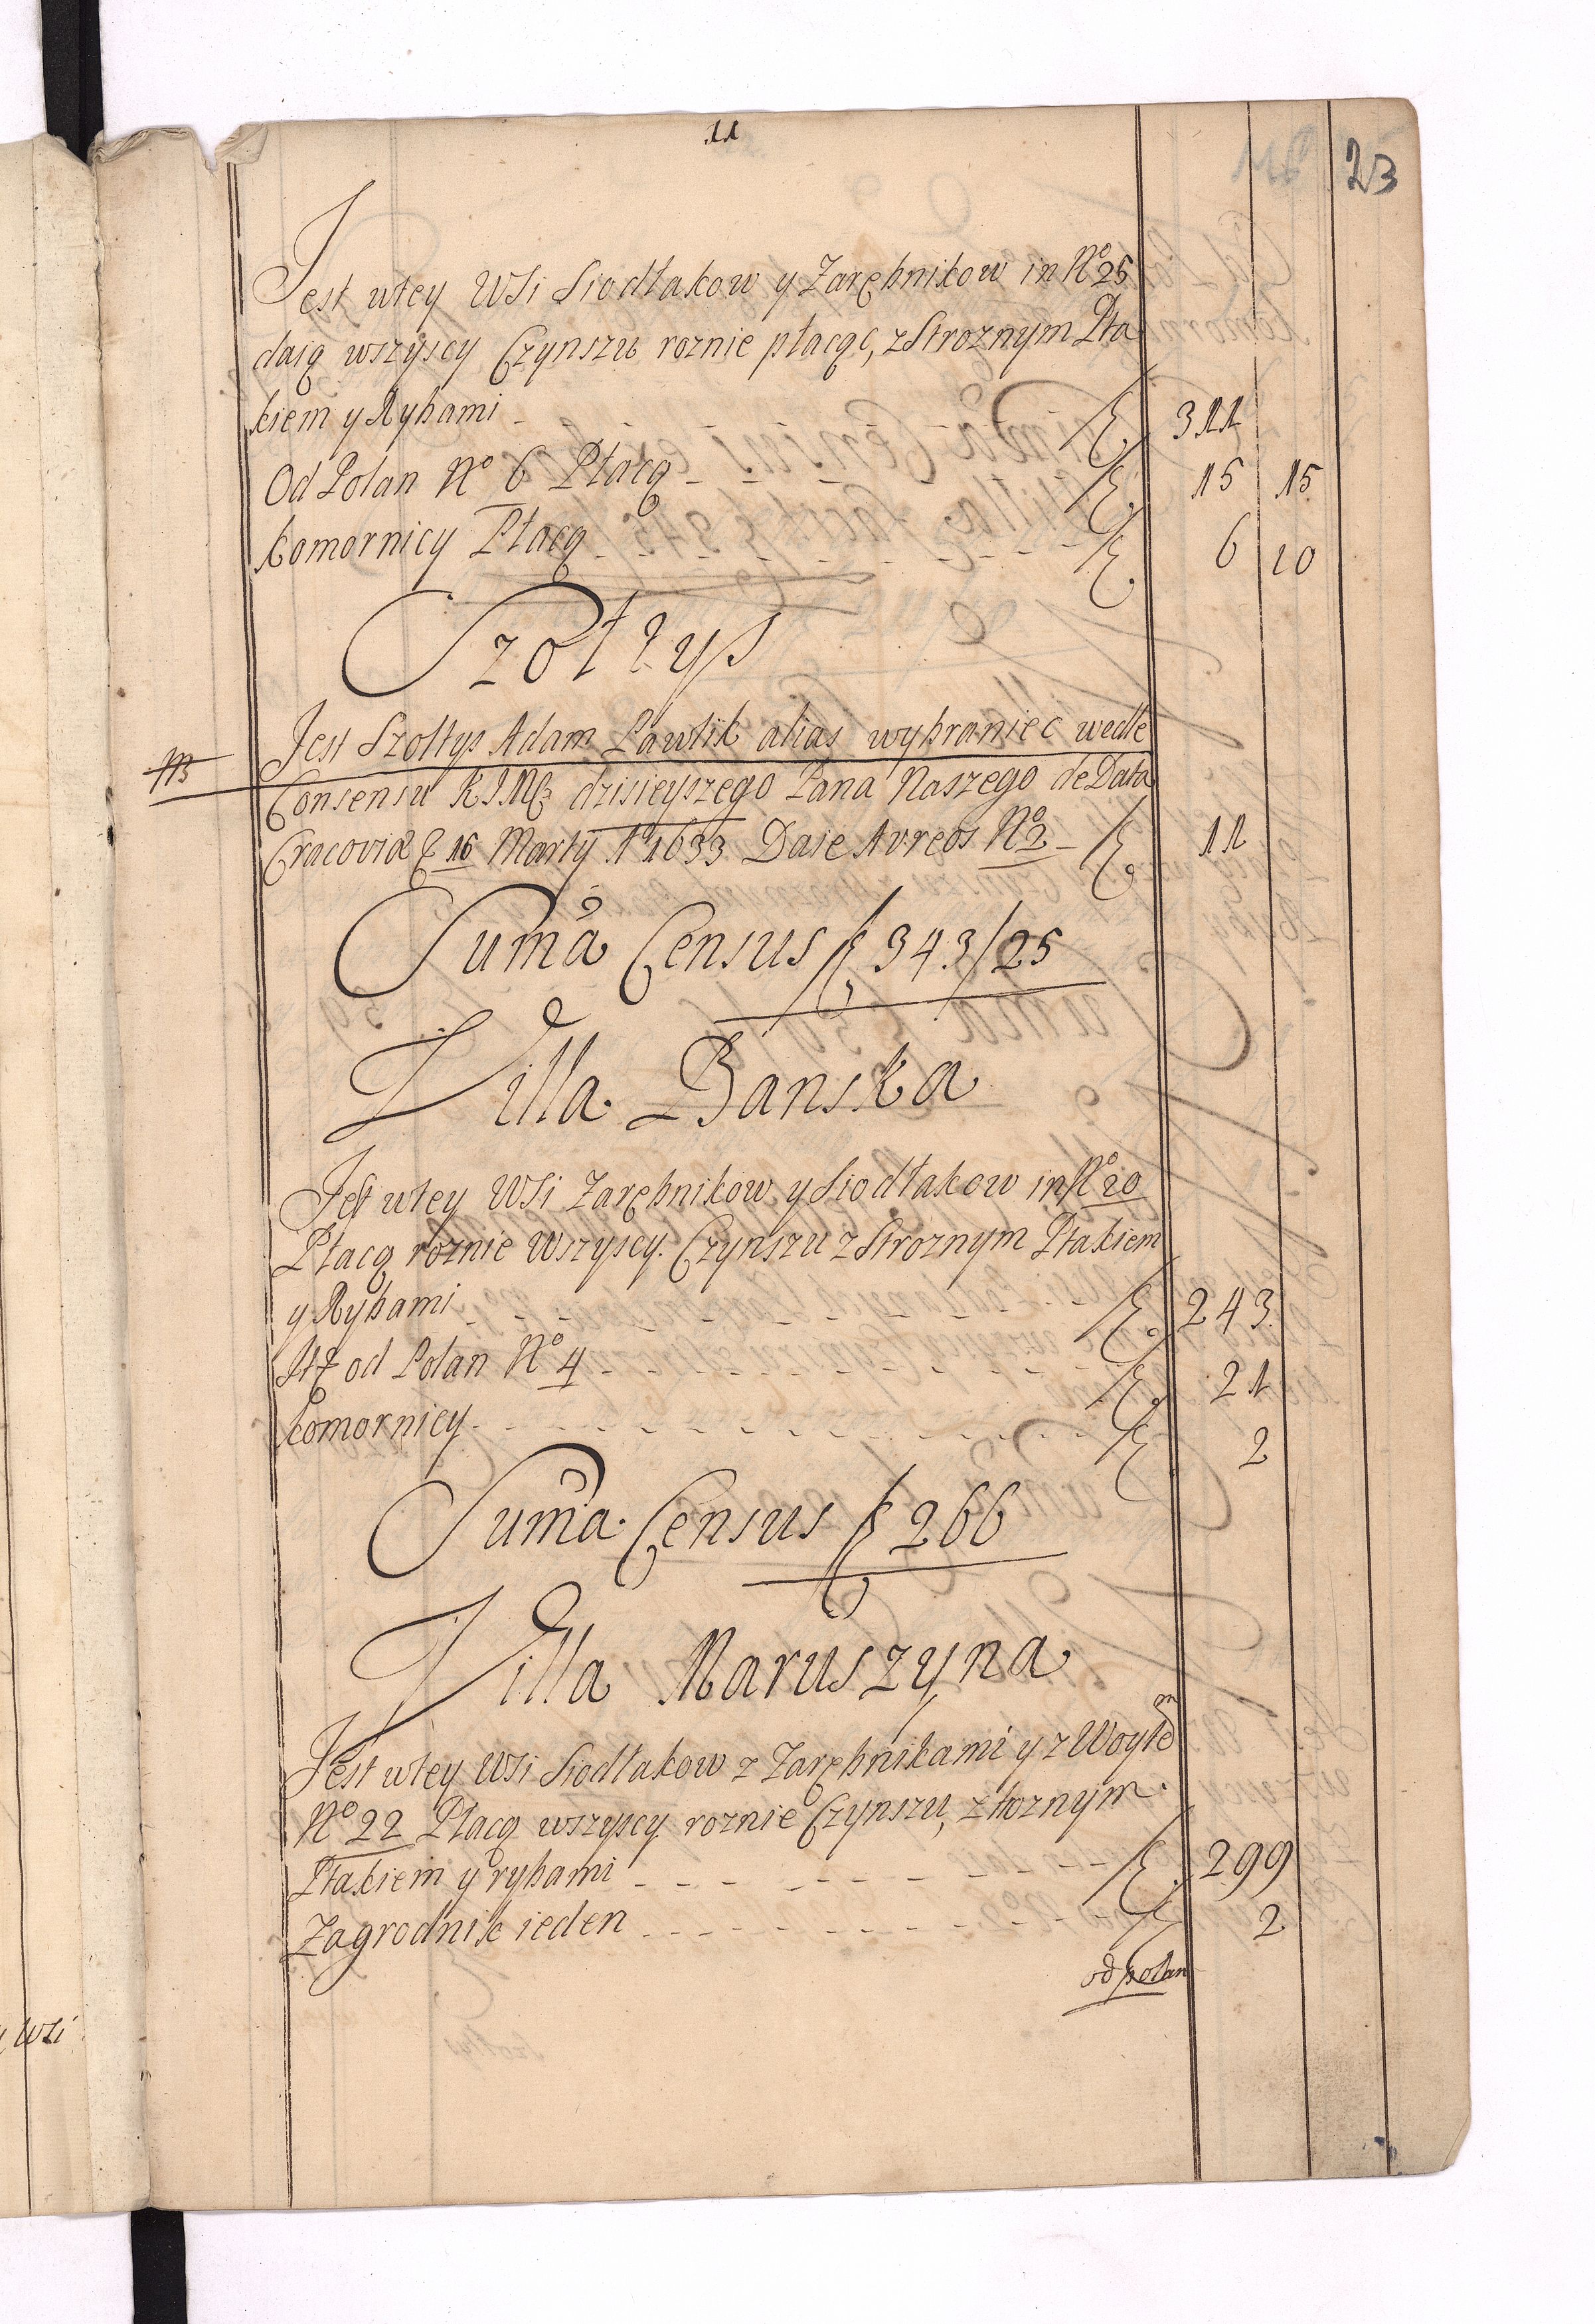 11
23
Jest wtey WSi Siodłakow y Zarębnikow in No 25
daią wszyscy Czynszu roznie płacąc, zStroznym Pta
kiem y Rybami - f. 311
Od Polan No 6 Płacą - - - f. 15 15
Komornicy Płacą - - - f. 6 10
Szołtys
Jest Szołtys Adam Pawlik alias wybraniec wedle
Consensu KJMci dzisieyszego Pana Naszego de Data
Cracoviæ 16 Martÿ Ao 1633 Daie Avreos No 2 - f. 11
Suma Census f 343/25
Villa Banska
Jest wtey WSi Zarębnikow y Siodłakow in No 20
Płacą roznie Wszyscy Czynszu zStroznym Ptakiem
y Rybami - - - f. 243
It od Polan No 4 - - - f. 21
Komornicy - - - f. 2
Suma Census f 266
Villa Maruszyna
Jest wtey WSi Siodłakow z Zarębnikami y z Woytem
No 22 Płacą wszyscy roznie Czynszu, ztroznym
Ptakiem y rybami - - - f. 299
Zagrodnik ieden - - - f. 2
od polan
WSi